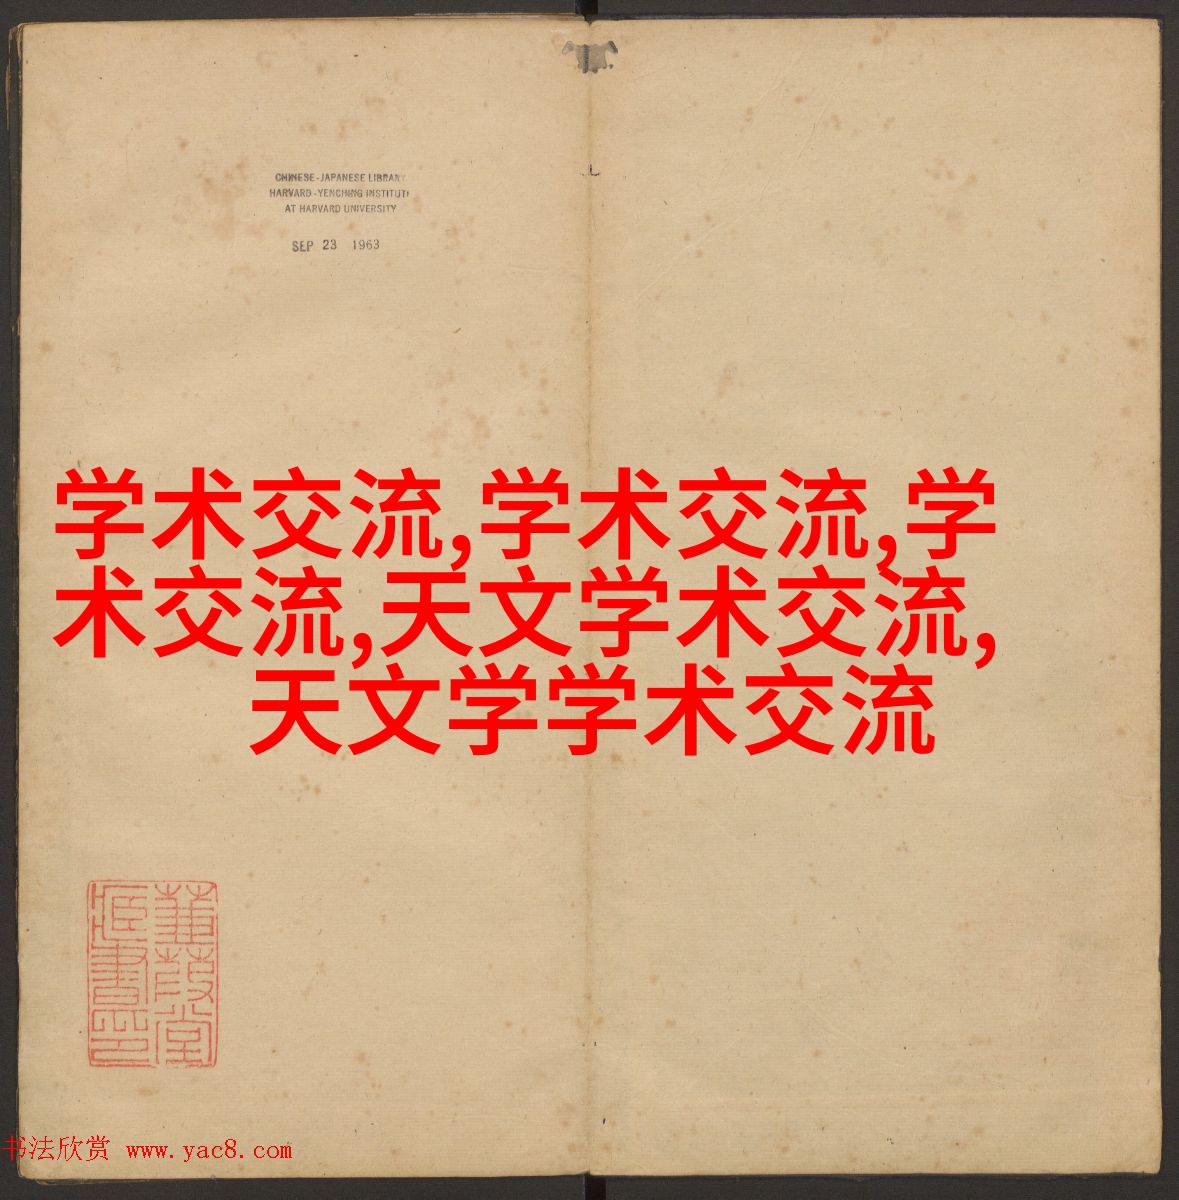 CHINESE-JAPANESE LIBRARY
HARVARD-YENCHING INSTITUTE
AT HARVARD UNIVERSITY
SEP 23 1963
学术交流,学术交流,学
术交流,天文学术交流,
天文学学术交流
蒹葭堂
藏書印
书法欣赏 www.yac8.com